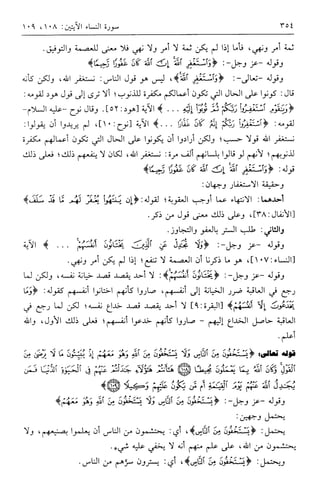 ٣٥٤ سورة النساء الآيتين: ١٠٨، ١٠٩
ثمة أمر ونهي، فأما إذا لم يكن ثمة لا أمر ولا نهي فلا معنى للعصمة والتوفيق.
وقوله -عز وجل-: ﴿وَٱسْتَغْفِرِ ٱللَّهَ إِنَّ ٱللَّهَ كَانَ غَفُورًا رَّحِيمًا﴾
وقوله -تعالى-: ﴿وَٱسْتَغْفِرِ ٱللَّهَ﴾، ليس هو قول الناس: نستغفر الله، ولكن كأنه
قال: كونوا على الحال التي تكون أعمالكم مكفرة للذنوب؛ ألا ترى إلى قول هود لقومه:
﴿وَيَٰقَوْمِ ٱسْتَغْفِرُوا۟ رَبَّكُمْ ثُمَّ تُوبُوٓا۟ إِلَيْهِ ...﴾ الآية [هود: ٥٢]. وقال نوح -عليه السلام-
لقومه: ﴿ٱسْتَغْفِرُوا۟ رَبَّكُمْ إِنَّهُۥ كَانَ غَفَّارًا ...﴾ الآية [نوح: ١٠]، لم يريدوا أن يقولوا:
نستغفر الله قولا حسب؛ ولكن أرادوا أن يكونوا على الحال التي تكون أعمالهم مكفرة
لذنوبهم؛ لأنهم لو قالوا بلسانهم ألف مرة: نستغفر الله، لكان لا ينفعهم ذلك؛ فعلى ذلك
قوله: ﴿وَٱسْتَغْفِرِ ٱللَّهَ إِنَّ ٱللَّهَ كَانَ غَفُورًا رَّحِيمًا﴾
وحقيقة الاستغفار وجهان:
أحدهما: الانتهاء عما أوجب العقوبة؛ لقوله: ﴿إِن يَنتَهُوا۟ يُغْفَرْ لَهُم مَّا قَدْ سَلَفَ﴾
[الأنفال: ٣٨]، وعلى ذلك معنى قول من ذكر.
والثاني: طلب الستر بالعفو والتجاوز.
وقوله -عز وجل-: ﴿وَلَا تُجَٰدِلْ عَنِ ٱلَّذِينَ يَخْتَانُونَ أَنفُسَهُمْ ...﴾ الآية
[النساء: ١٠٧]، هو ما ذكرنا أن العصمة لا تنفع؛ إذا لم يكن أمر ونهي.
وقوله -عز وجل-: ﴿يَخْتَانُونَ أَنفُسَهُمْ﴾: لا أحد يقصد قصد خيانة نفسه، ولكن لما
رجع في العاقبة ضرر الخيانة إلى أنفسهم، صاروا كأنهم اختانوا أنفسهم كقوله: ﴿وَمَا
يَخْدَعُونَ إِلَّآ أَنفُسَهُمْ﴾ [البقرة: ٩] لا أحد يقصد قصد خداع نفسه؛ لكن لما رجع في
العاقبة حاصل الخداع إليهم - صاروا كأنهم خدعوا أنفسهم؛ فعلى ذلك الأول، والله
أعلم.
قوله تعالى: ﴿يَسْتَخْفُونَ مِنَ ٱلنَّاسِ وَلَا يَسْتَخْفُونَ مِنَ ٱللَّهِ وَهُوَ مَعَهُمْ إِذْ يُبَيِّتُونَ مَا لَا يَرْضَىٰ مِنَ
ٱلْقَوْلِ وَكَانَ ٱللَّهُ بِمَا يَعْمَلُونَ مُحِيطًا ۝١٠٨ هَٰٓأَنتُمْ هَٰٓؤُلَآءِ جَٰدَلْتُمْ عَنْهُمْ فِى ٱلْحَيَوٰةِ ٱلدُّنْيَا فَمَن
يُجَٰدِلُ ٱللَّهَ عَنْهُمْ يَوْمَ ٱلْقِيَٰمَةِ أَم مَّن يَكُونُ عَلَيْهِمْ وَكِيلًا ۝١٠٩﴾
وقوله -عز وجل-: ﴿يَسْتَخْفُونَ مِنَ ٱلنَّاسِ وَلَا يَسْتَخْفُونَ مِنَ ٱللَّهِ وَهُوَ مَعَهُمْ﴾
يحتمل وجهين:
يحتمل: ﴿يَسْتَخْفُونَ مِنَ ٱلنَّاسِ﴾، أي: يحتشمون من الناس أن يعلموا بصنيعهم، ولا
يحتشمون من الله، على علم منهم أنه لا يخفى عليه شيء.
ويحتمل: ﴿يَسْتَخْفُونَ مِنَ ٱلنَّاسِ﴾، أي: يسترون سرهم من الناس.